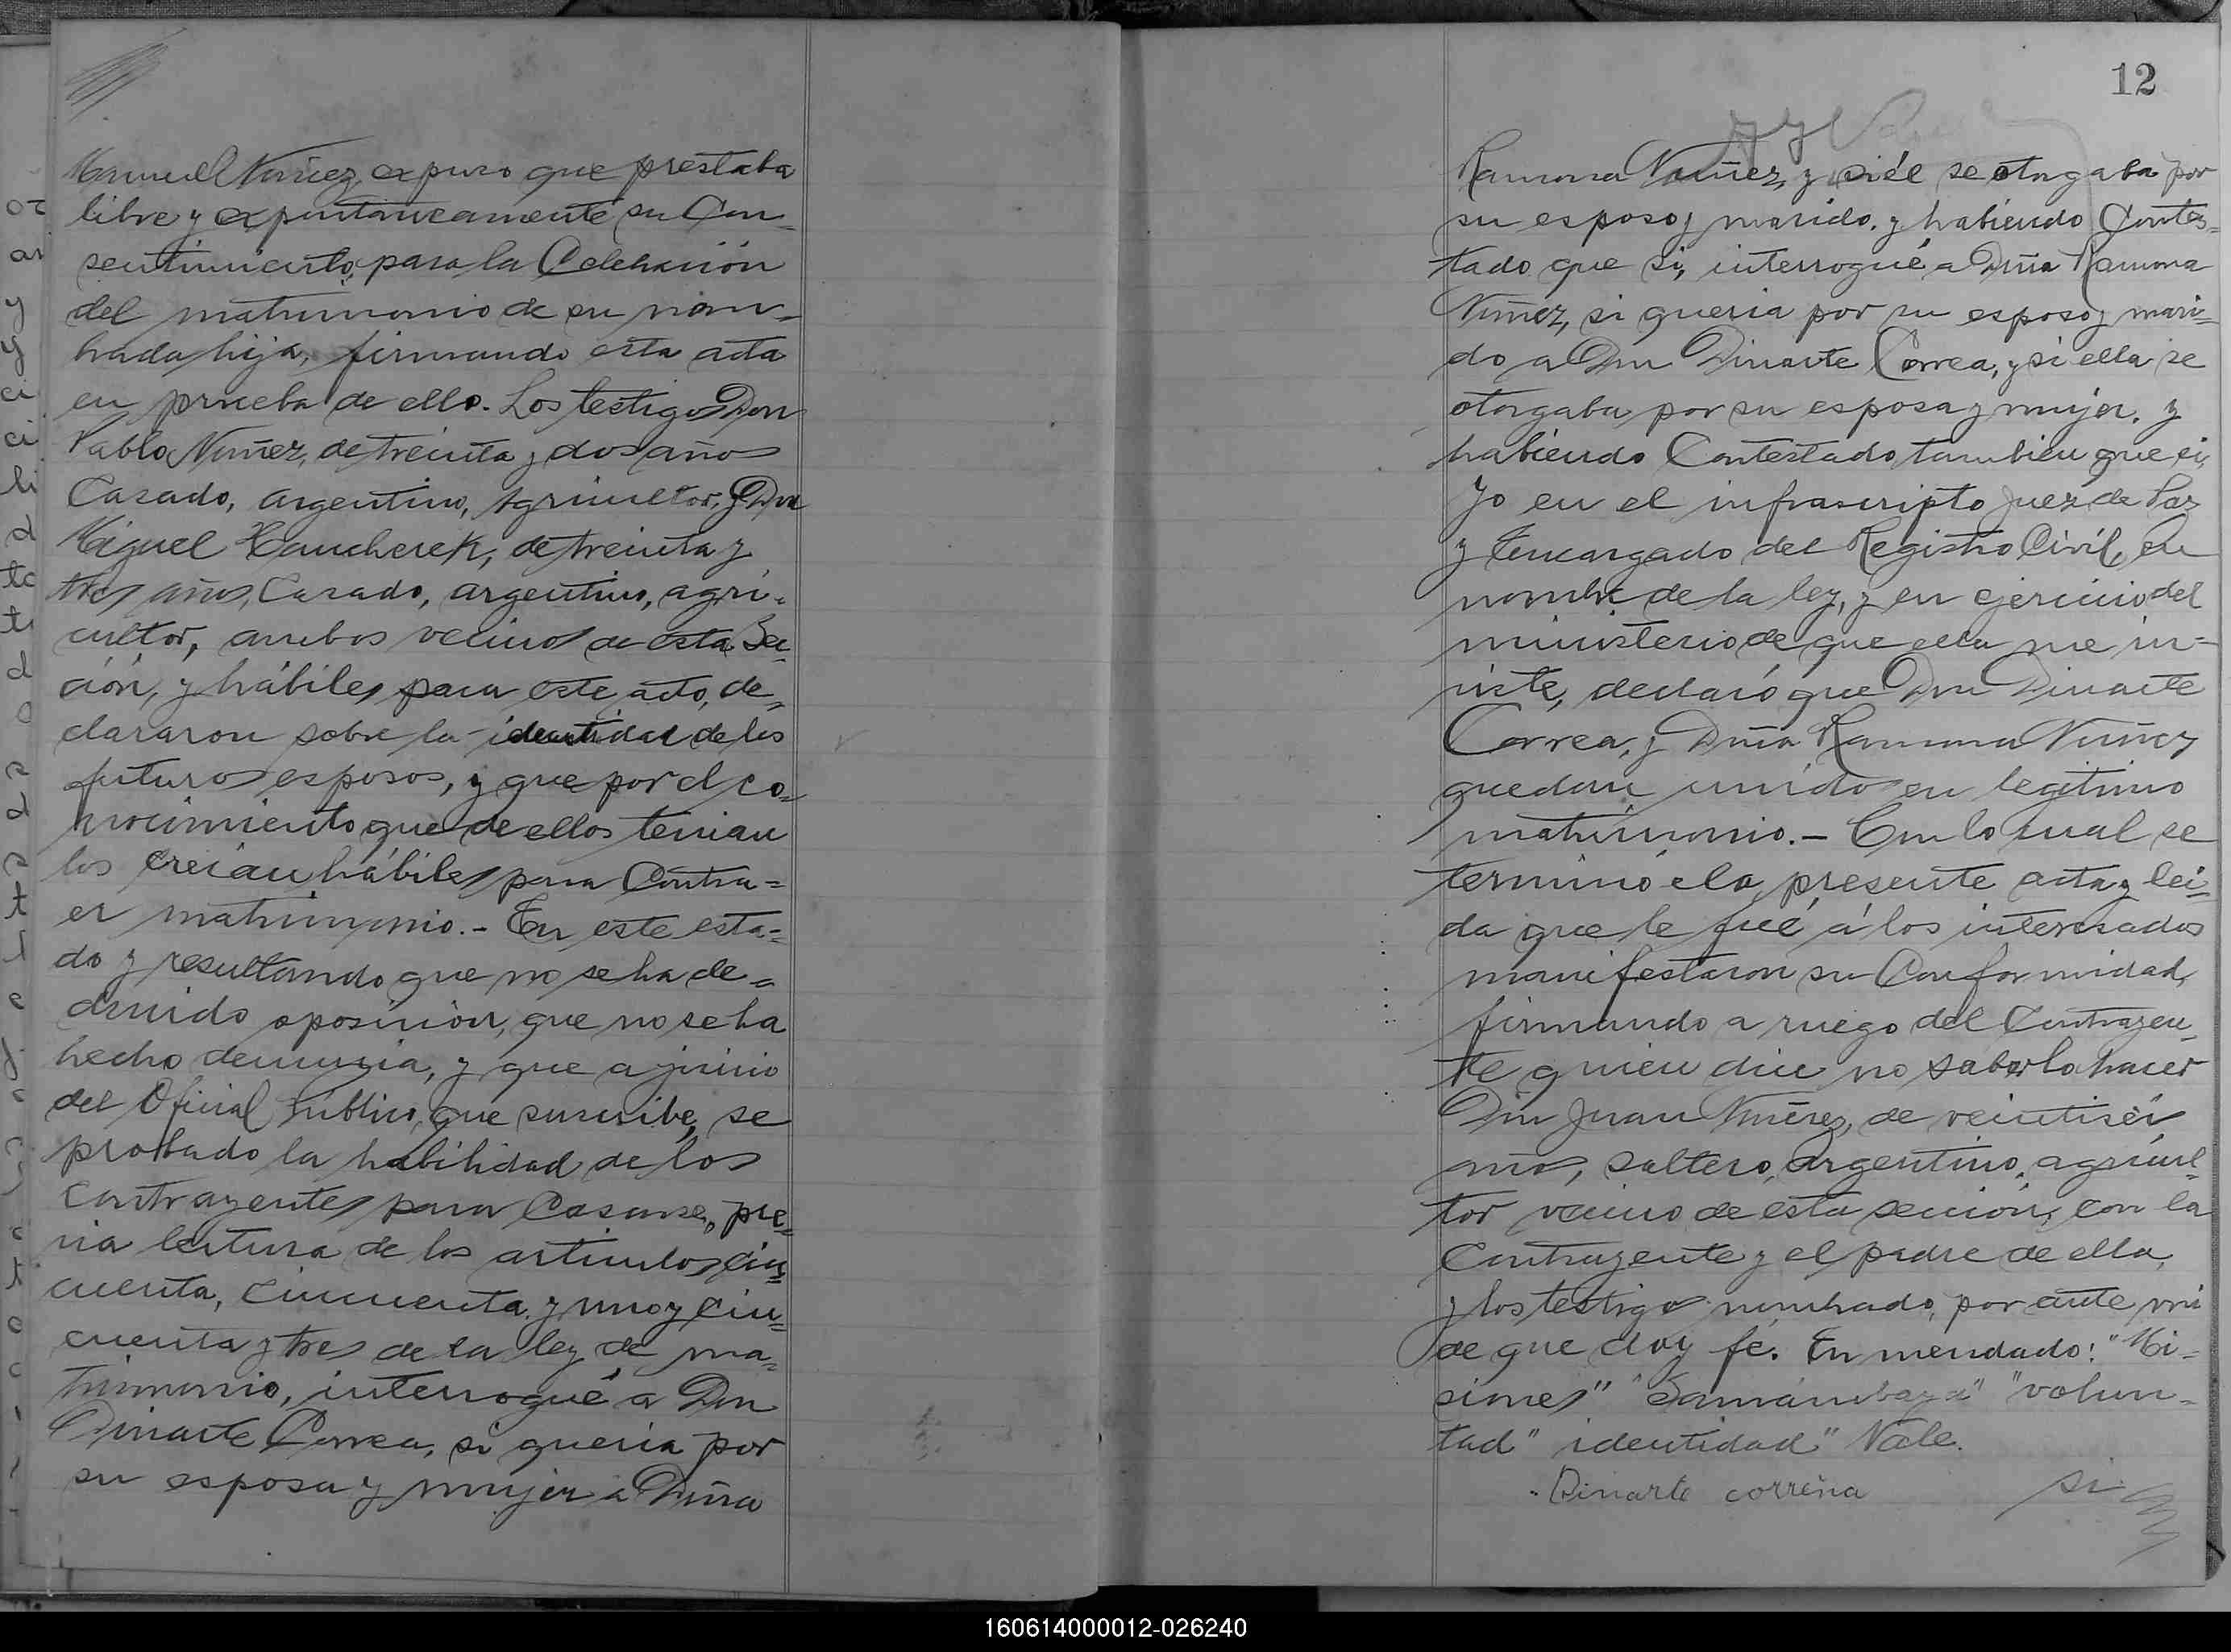 Manuel Nuñez, expuso que prestaba
libre y expontaneamente su Con=
sentimiento, para la Celebración
del matrimonio de su nom=
brada hija, firmando esta acta
en prueba de ello. Los testigos Don
Pablo Nuñez, de treinta y dos años
Casado, argentino, Agricultor, y Don
Miguel de treinta y
tres años, Casado, argentino, agri=
cultor, ambos vecinos de esta Sec=
ción, y hábiles para este acto, de=
clararon sobre la identidad de los
futuros esposos, y que por el co=
nocimiento que de ellos tenian
los creian hábiles para Contra=
er matrimonio.- En este esta=
do y resultando que no se ha de=
ducido oposición, que no se ha
hecho denuncia, y que a juicio
del Oficial Público, que suscribe, se
probado la habilidad de los
contrayentes para Casarse, pre=
via lectura de los articulos cin=
cuenta, cincuenta y uno y cin=
cuenta y tres de la ley de ma=
trimonio, interrogué a Don
Dinarte Correa, si queria por
su esposa y mujer a Doña
12
Ramona Nuñez, y si él se otorgaba por
su esposo y marido, y habiendo Contes=
tado que si, interrogué a Doña Ramona
Nuñez, si queria por su esposo y mari=
do a Don Dinarte Correa, y si ella se
otorgaba por su esposa y mujer, y
habiendo Contestado tambien que si,
Yo en el infrascripto Juez de Paz
y Encargado del Registro Civil, en
nombre de la ley, y en ejercicio del
ministerio de que ella me in=
viste, declaró que Don Dinarte
Correa, y Doña Ramona Nuñez
quedan unidos en legitimo
matrimonio.- Con lo cual se
terminó la presente acta y lei=
da que le fué á los interesados
manifestaron su Conformidad,
firmando a ruego del Contrayen=
te quien dice no saberlo hacer
Don Juan Nuñez, de veintiseis
años, soltero, argentino, agricul=
tor vecino de esta sección, con la
Contrayente y el padre de ella,
y los testigos nombrado, por ante mi
de que doy fé. Enmendado: "Mi=
siones" "volun=
tad" identidad" Vale.
Dinarte correña si
160614000012-026240